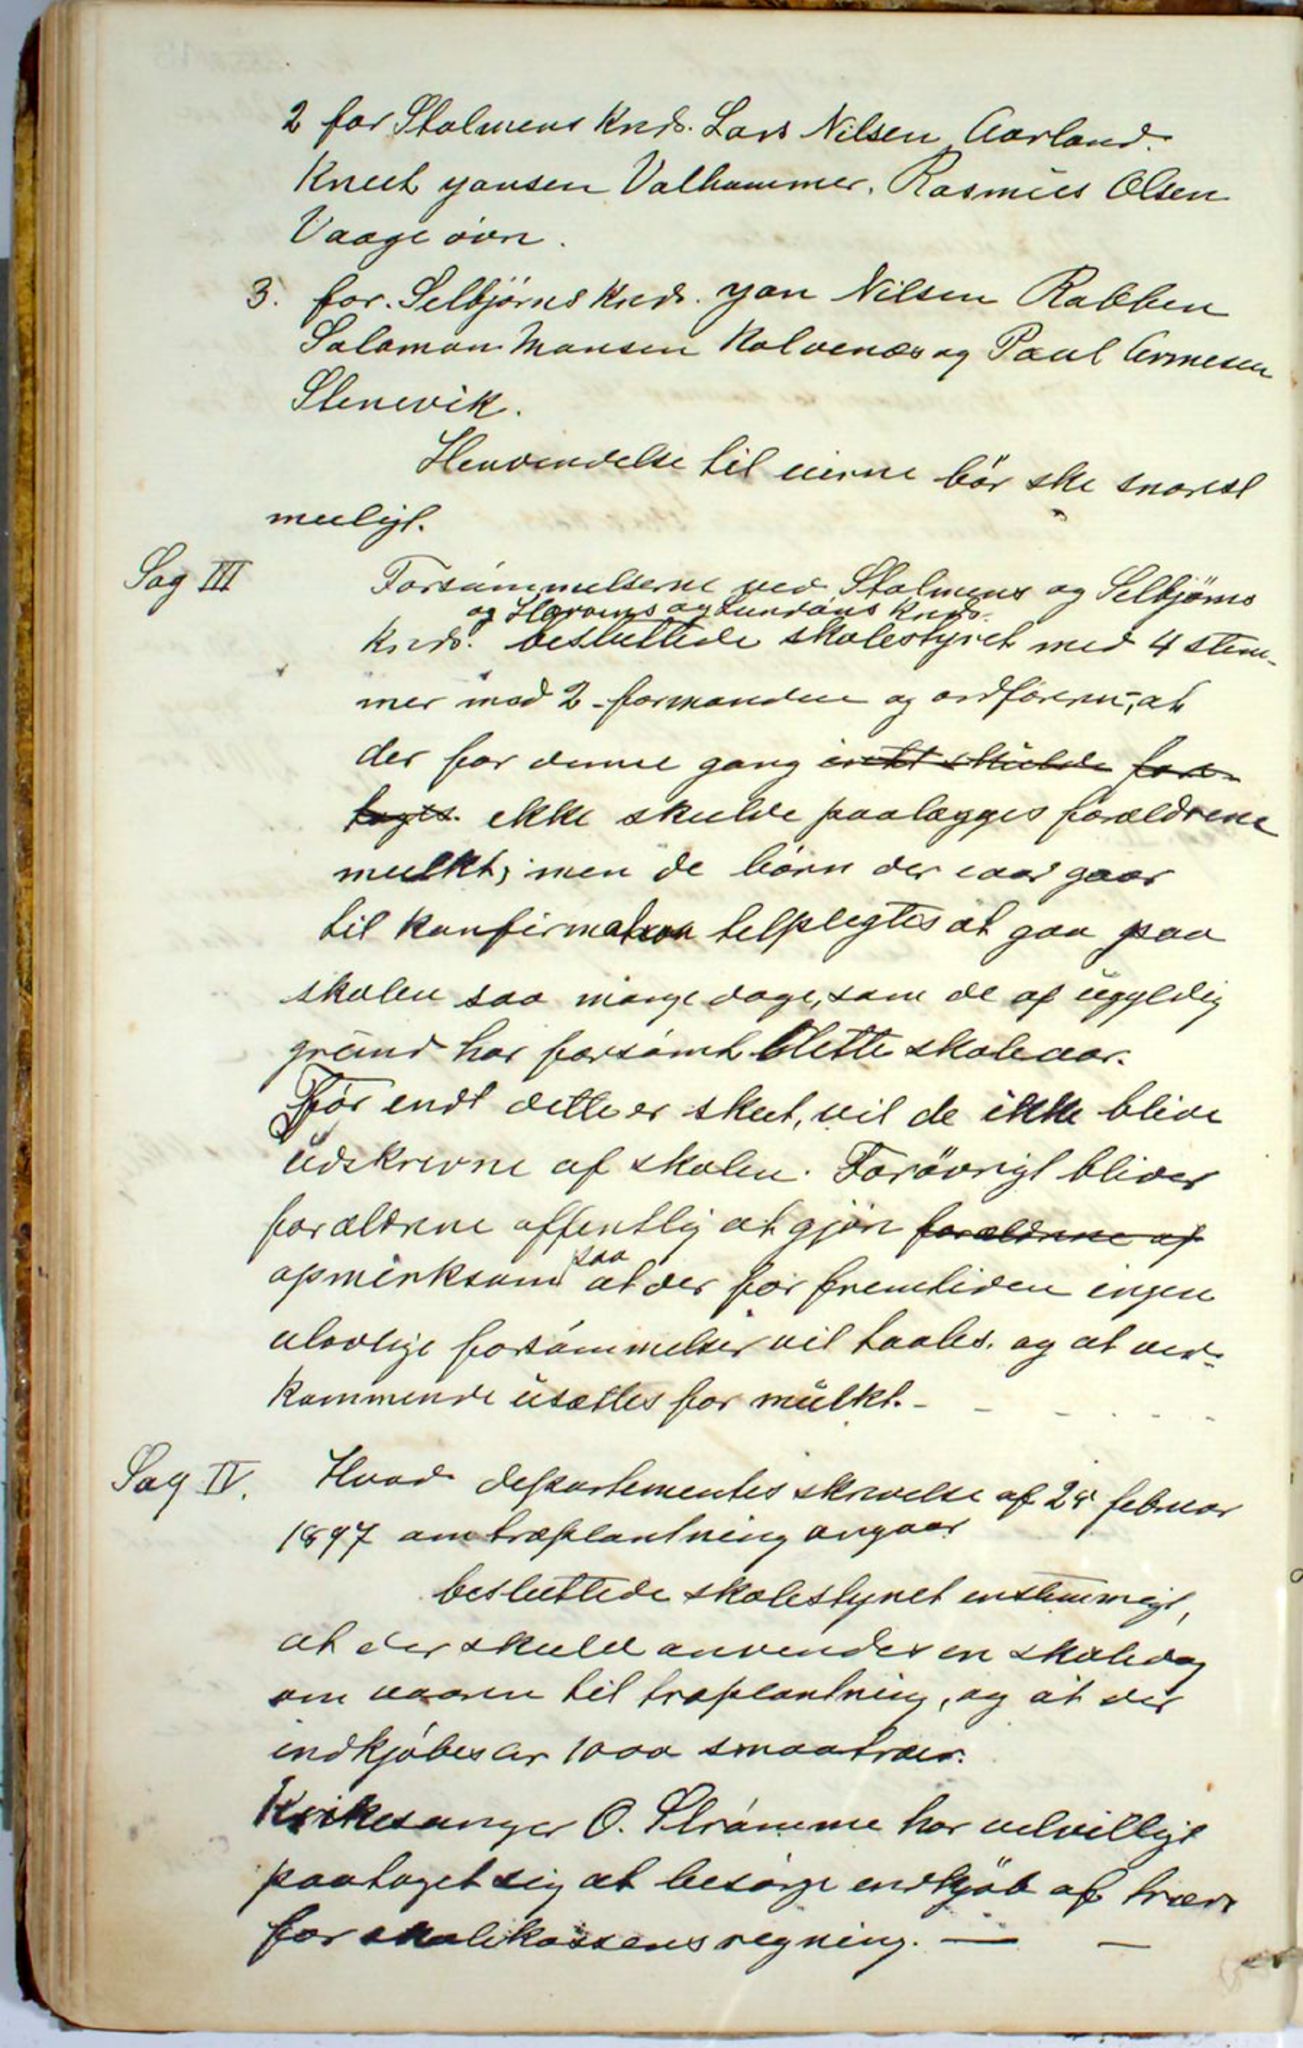 2 for Stolmens Krds. Lars Nilsen Aarland.
Knut Jansen Valhammer. Rasmus Olsen
Vaage övre.
3. for. Selbjörns Krds. Jan Nilsen Rabben
Salamon Monsen Kolvenæs og Paul Arnesen
Stenevik.
Henvendelse til eierne bör ske snarest
muligt.
Sag III Forsömmelserne ved Stolmens og Selbjörns
og Horgens og Sundöens Krds.
Krds. besluttede skolestyret med 4 stem-
mer mod 2 - formanden og ordföreren -, at
der for denne gang intet skulde fore-
tages. ikke skulde paalægges forældrene
mulkt; men de börn der iaar gaar
til konfirmation tilpligtes at gaa paa
skolen saa mange dage, som de af ugyldig
grund har forsömt dette skoleaar.
För endt dette er skeet, vil de ikke blive
udskrevne af skolen. Forövrigt bliver
forældrene offentlig at gjöre forældrene op
opmerksom paa at der for fremtiden ingen
ulovlige forsömmelser vil taales. og at ved-
kommende usættes for mulkt. -
Sag IV. Hvad departementes skrivelse af 25 februar
1897 om træplantning angaar
besluttede skolestyret enstemmigt,
at der skulde anvendes en skoledag
om vaaren til træplantning, og at der
indkjöbes ca 1000 smaatræer.
Kirkesanger O. Strömme har velvilligt
paataget sig at besörge indkjöb af træer
for skolekassens regning. — —